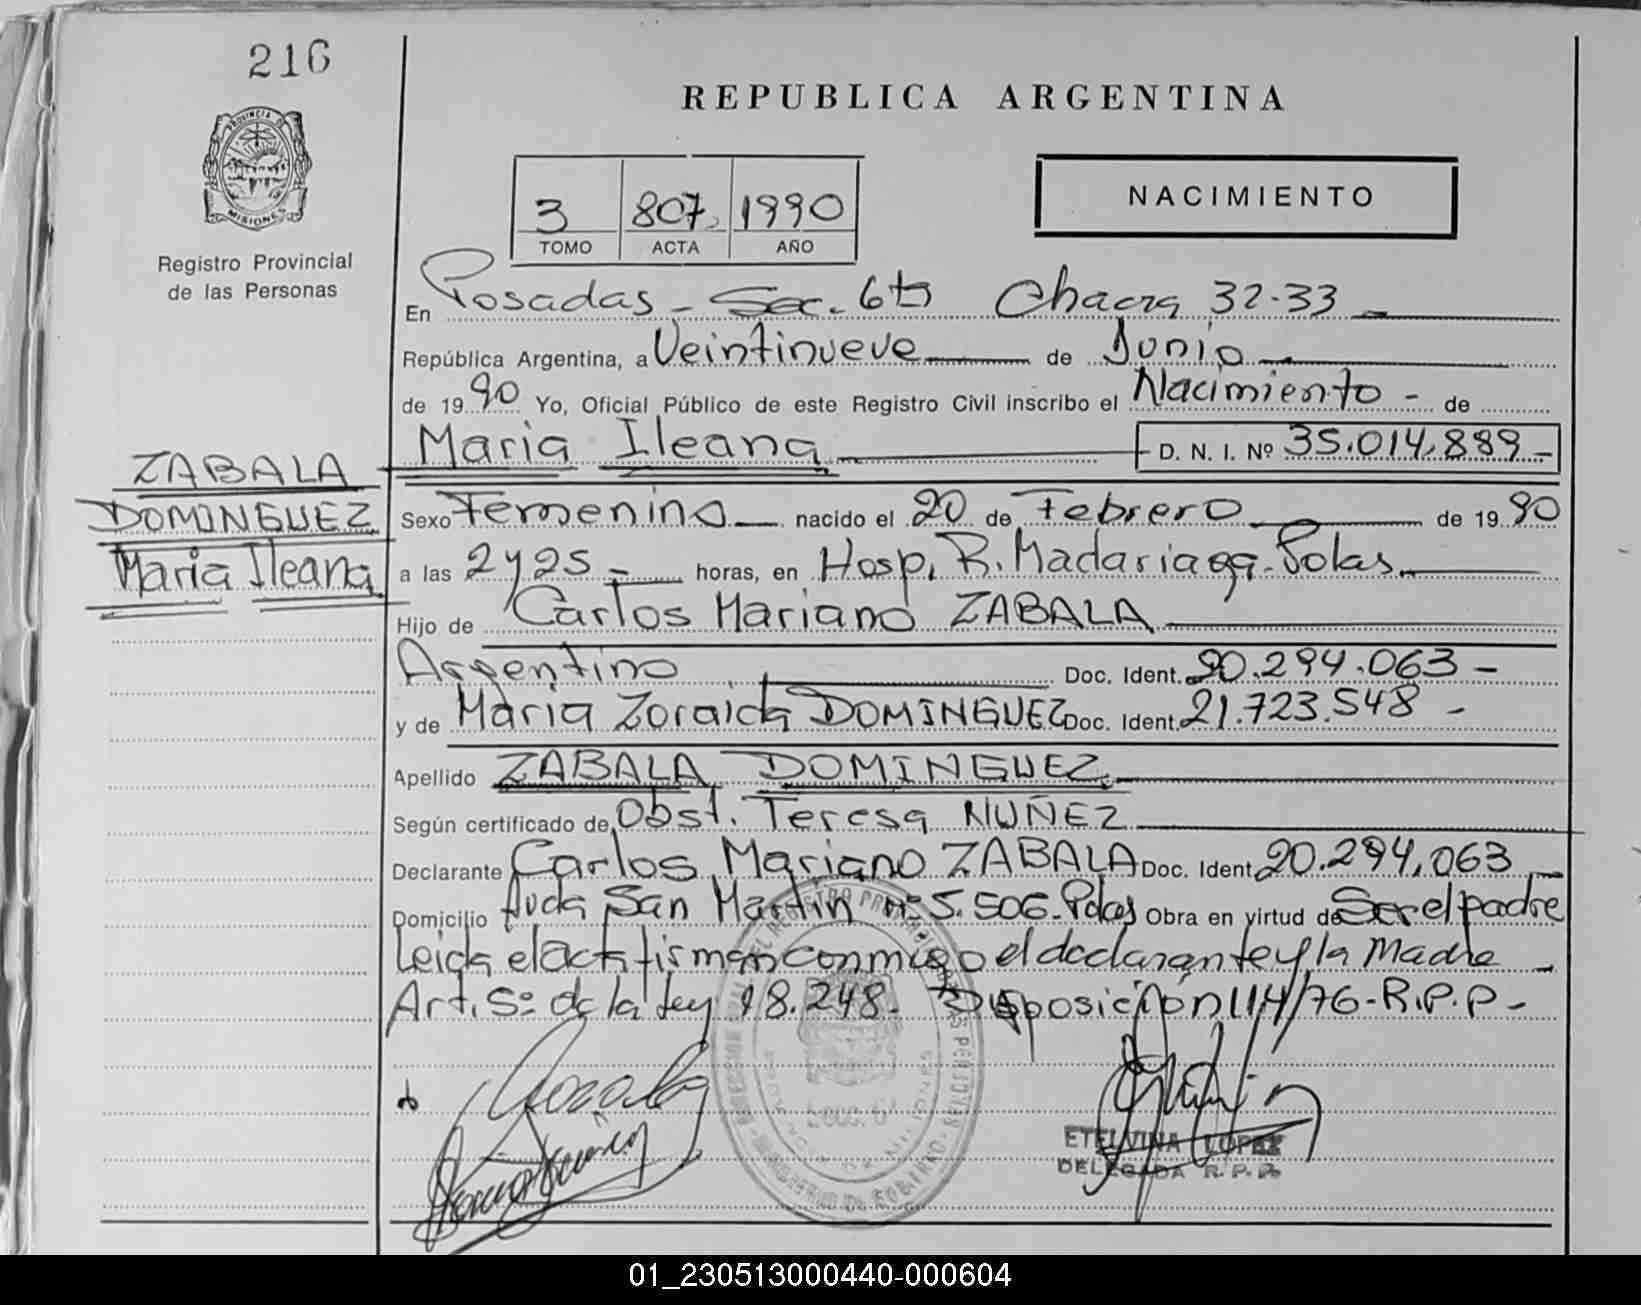 216
REPUBLICA ARGENTINA
PROVINCIA DE
MISIONES
Registro Provincial
de las Personas
3 807 1990
TOMO ACTA AÑO
NACIMIENTO
En Posadas - Sec. 6ta Chacra 32-33
República Argentina, a Veintinueve de Junio
de 1990 Yo, Oficial Público de este Registro Civil inscribo el Nacimiento - de
Maria Ileana D. N. I. Nº 35.014.889 -
ZABALA
DOMINGUEZ
Maria Ileana
Sexo Femenino nacido el 20 de Febrero de 1990
a las 2 y 25 - horas, en Hosp. R. Madariaga - Pdas.
Hijo de Carlos Mariano ZABALA
Argentino Doc. Ident. 20.294.063 -
y de Maria Zoraida DOMINGUEZ Doc. Ident. 21.723.548 -
Apellido ZABALA DOMINGUEZ
Según certificado de Obst. Teresa NUÑEZ
Declarante Carlos Mariano ZABALA Doc. Ident. 20.294.063
Domicilio Avda San Martin nº 5.506 - Pdas Obra en virtud de Ser el padre
Leida el acta firman conmigo el declarante y la Madre -
Art. 5º de la Ley 18.248. Disposición 114/76 - R.P.P -
ETELVINA LOPEZ
DELEGADA R. P. P.
01_230513000440-000604